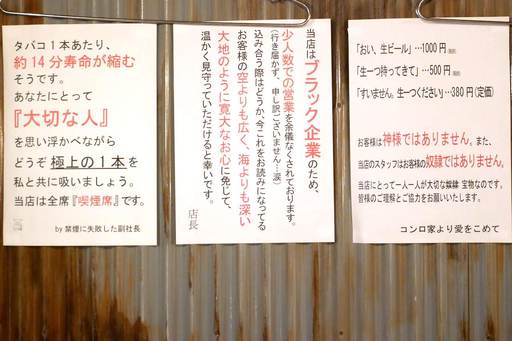 タバコ1本あたり、
約14分寿命が縮む
そうです。
あなたにとって
『大切な人』
を思い浮かべながら
どうぞ 極上の1本を
私と共に吸いましょう。
当店は全席『喫煙席』です。
by 禁煙に失敗した副社長
当店はブラック企業のため、
少人数での営業を余儀なくされております。
(行き届かず、申し訳ございません…涙)
込み合う際はどうか、今これをお読みになってる
お客様の空よりも広く、海よりも深い
大地のように寛大なお心に免じて、
温かく見守っていただけると幸いです。
店長
「おい、生ビール」…1000円
「生一つ持ってきて」…500円
「すいません。生一つください」…380円(定価)
お客様は神様ではありません。また、
当店のスタッフはお客様の奴隷ではありません。
当店にとって一人一人が大切な 宝物なのです。
皆様のご理解とご協力をお願いいたします。
コンロ家より愛をこめて